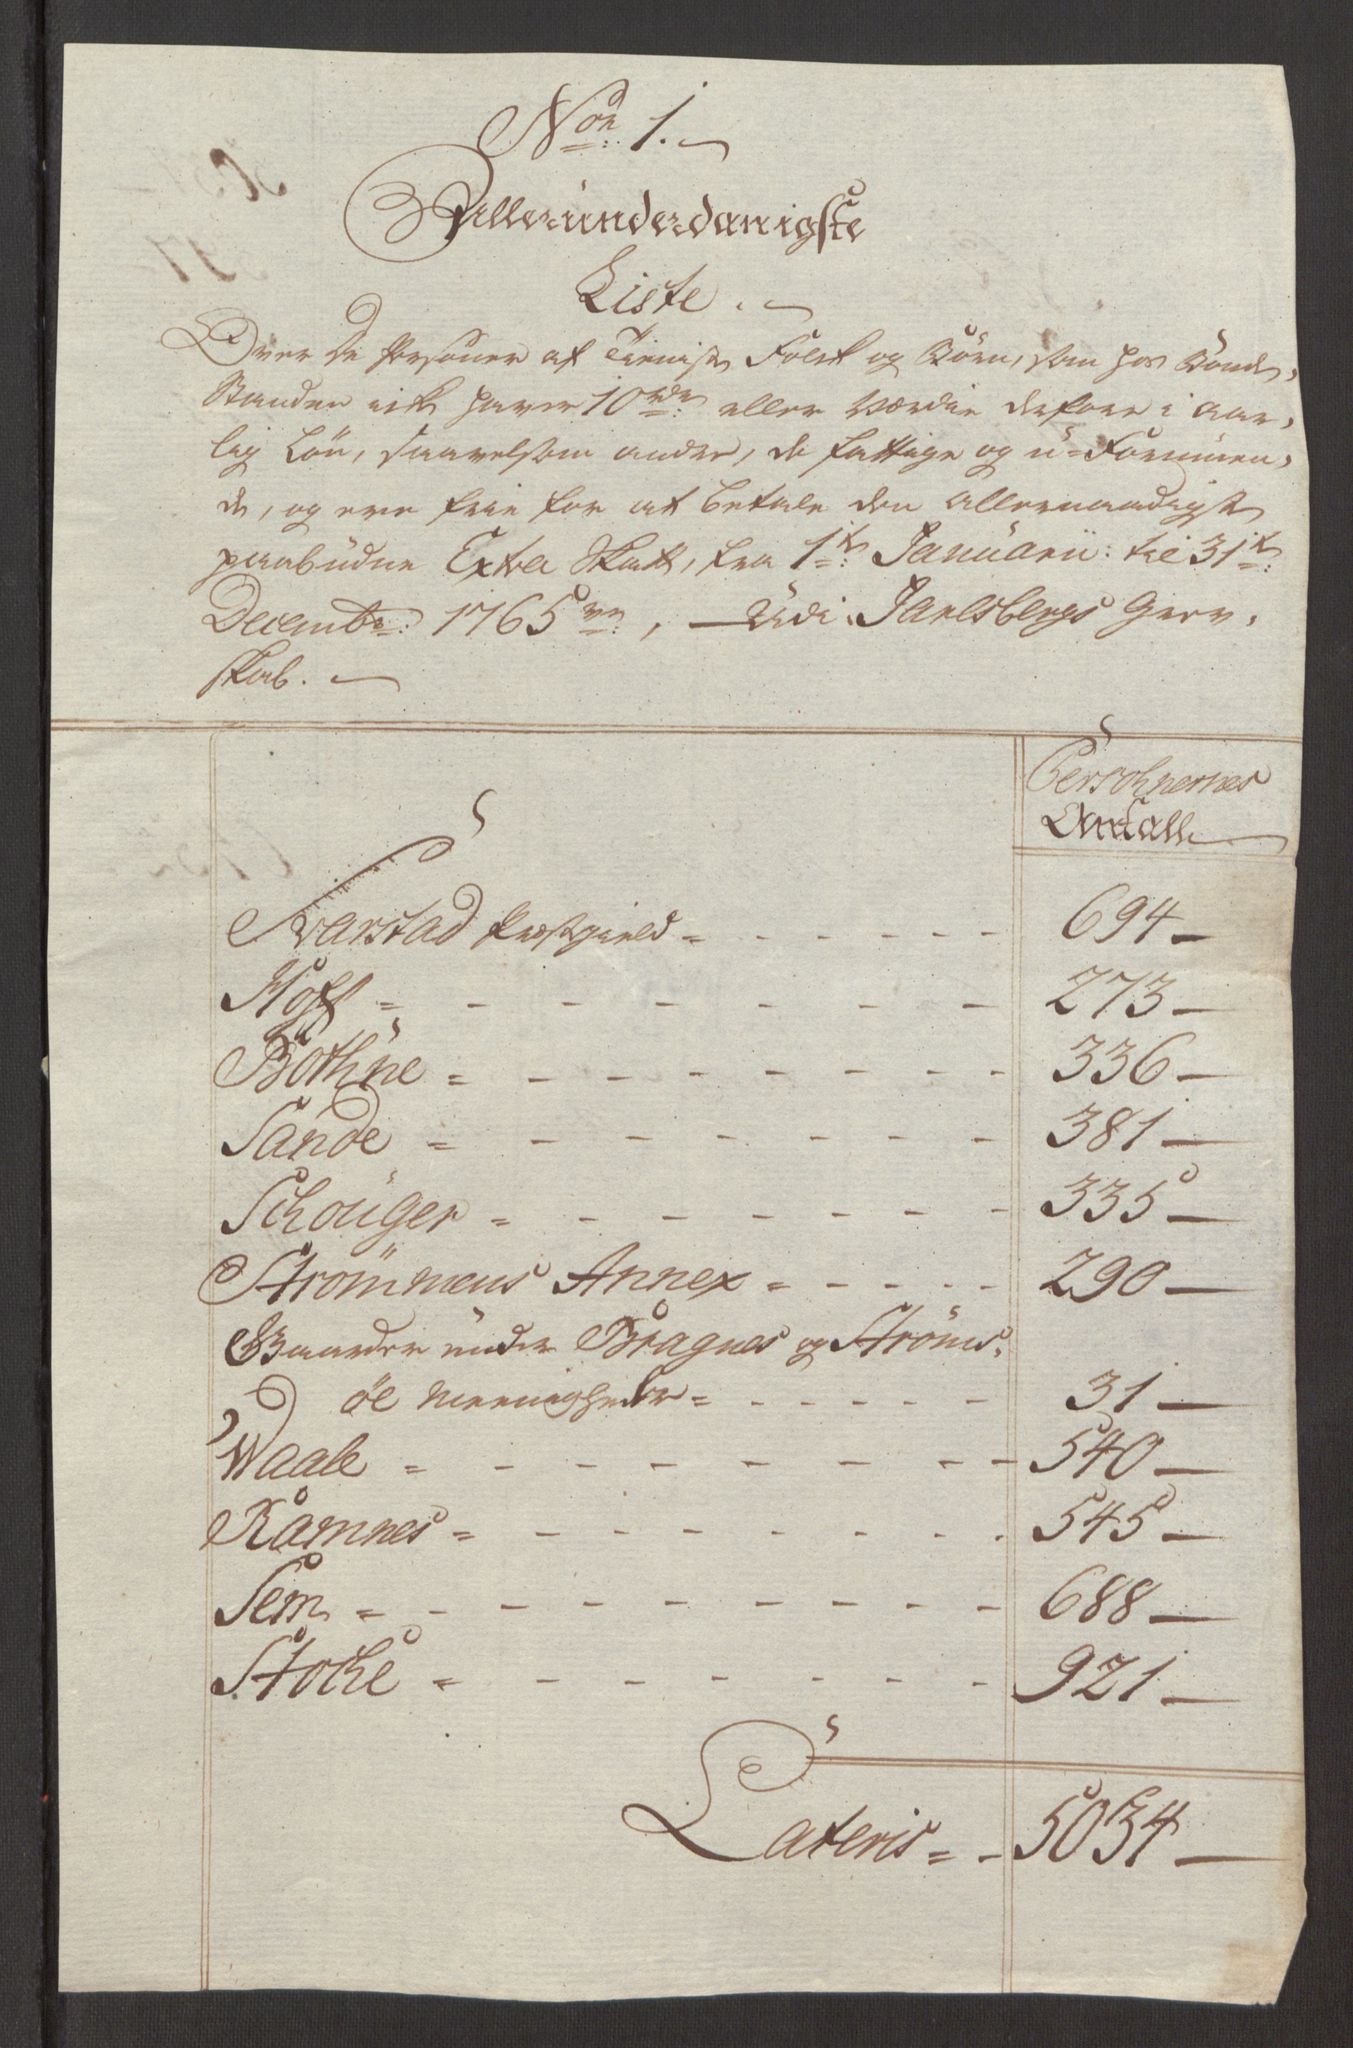 Noe 1.
Allerunderdanigste
Liste.
Over de Persohner af Tienist Folck og Börn, som hos Bonde-
Standen eik haver 10 rdr: eller Værdie derfore i aar-
lig Lön, saavelsom andre, de fattige og u-Formuen-
de, og ere frie for at betale den allernaadigst
paabudne Extra Skatt, fra 1te Januarii: til 31te
Decembr: 1765 ve:, Udi Jarlsbergs Grev-
skab.
Persohnernes
Antall
Svarstad Præstgield = - - - - - 694
Hoff = - - - - - - - 273
Bothne = - - - - - - - 336
Sande = - - - - - - - 381
Schouger = - - - - - - - 335
Strömmens Annex = - - - - - 290
Gaarder under Bragnes og Ströms-
öe Meenigheder = - - - - - 31
Waale = - - - - - - - 540
Ramnes = - - - - - - - 545
Sem = - - - - - - - - 688
Stocke = - - - - - - - 921
Lateris = - 5034